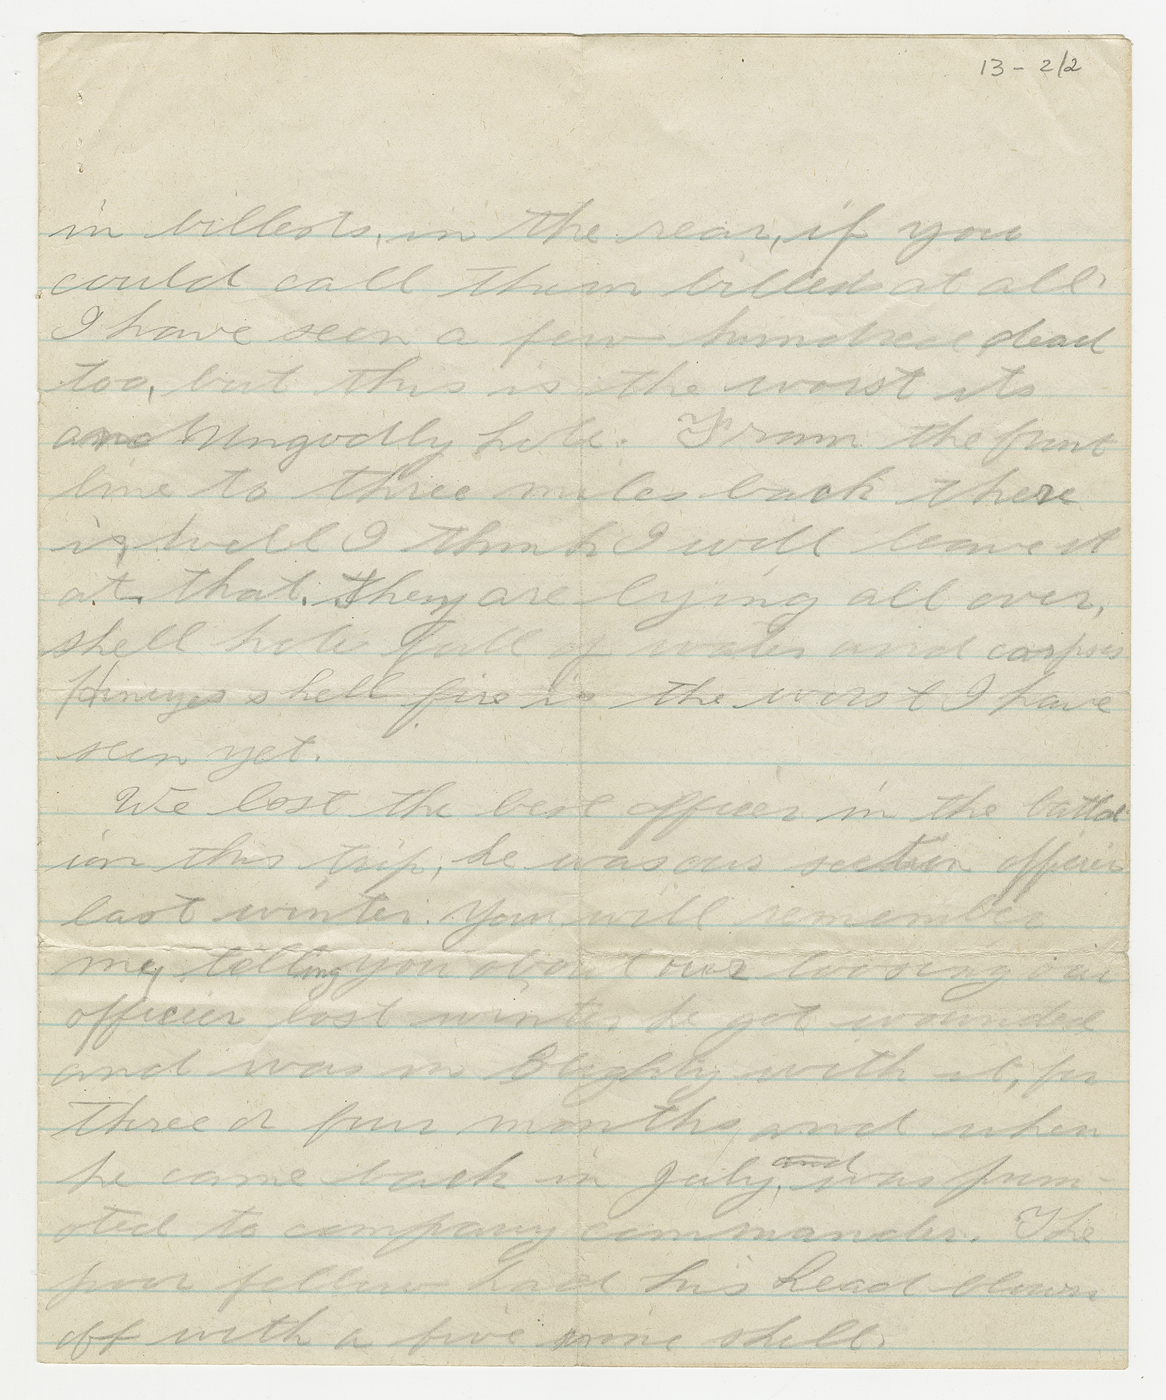 13 - 2/2
in billets, in the rear, if you
could call them billets at all.
I have seen a few hundred dead
too, but this is the worst its
an Ungodly hole. From the front
line to three miles back there
is, well I think I will leave it
at. that. They are lying all over,
shell hole full of water and corpses
shell fire is the worst I have
seen yet.
We lost the best officer in the battal
ion this trip, he was our section officer
last winter. You will remember
my telling you about our loosing our
officer last winter he got wounded
and was in Blighty with it, for
three or four months, and when
he came back in July, and was prom-
oted to company commander. The
poor fellow had his head blown
off with a five nine shell.